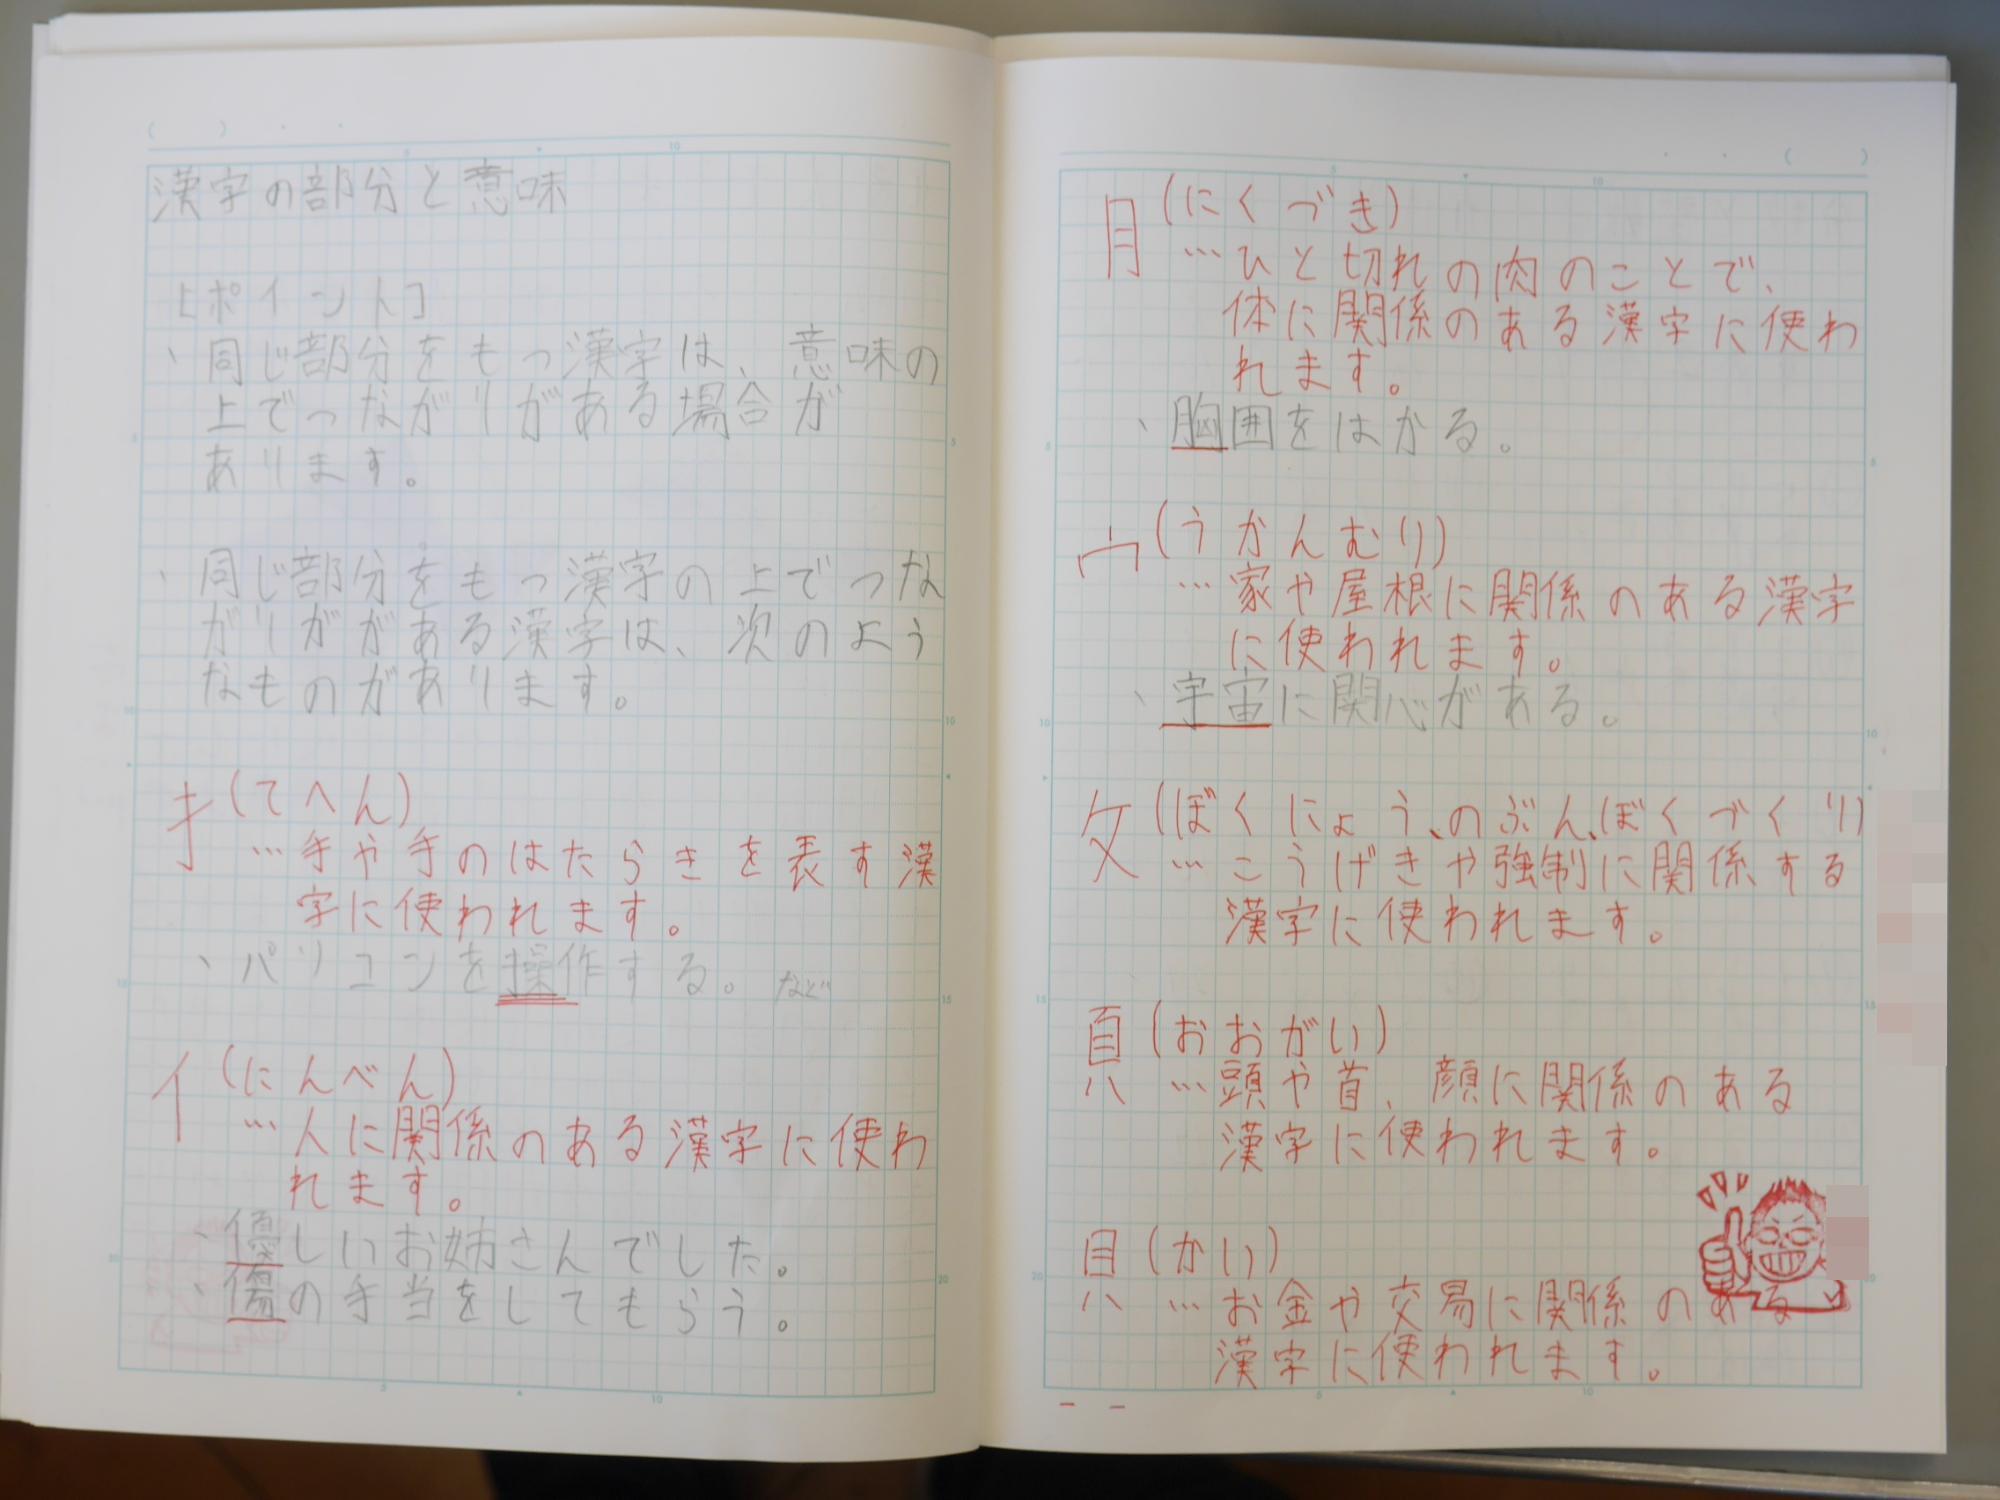 漢字の部分と意味
[ポイント]
、同じ部分をもつ漢字は、意味の
上でつながりがある場合が
あります。
、同じ部分をもつ漢字の上でつな
がりががある漢字は、次のよう
なものがあります。
扌(てへん)
…手や手のはたらきを表す漢
字に使われます。
、パソコンを操作する。など
イ(にんべん)
…人に関係のある漢字に使わ
れます。
、優しいお姉さんでした。
、傷の手当をしてもらう。
月(にくづき)
…ひと切れの肉のことで、
体に関係のある漢字に使わ
れます。
、胸囲をはかる。
宀(うかんむり)
…家や屋根に関係のある漢字
に使われます。
、宇宙に関心がある。
攵(ぼくにょう、のぶん、ぼくづくり)
…こうげきや強制に関係する
漢字に使われます。
頁(おおがい)
…頭や首、顔に関係のある
漢字に使われます。
貝(かい)
…お金や交易に関係のある
漢字に使われます。